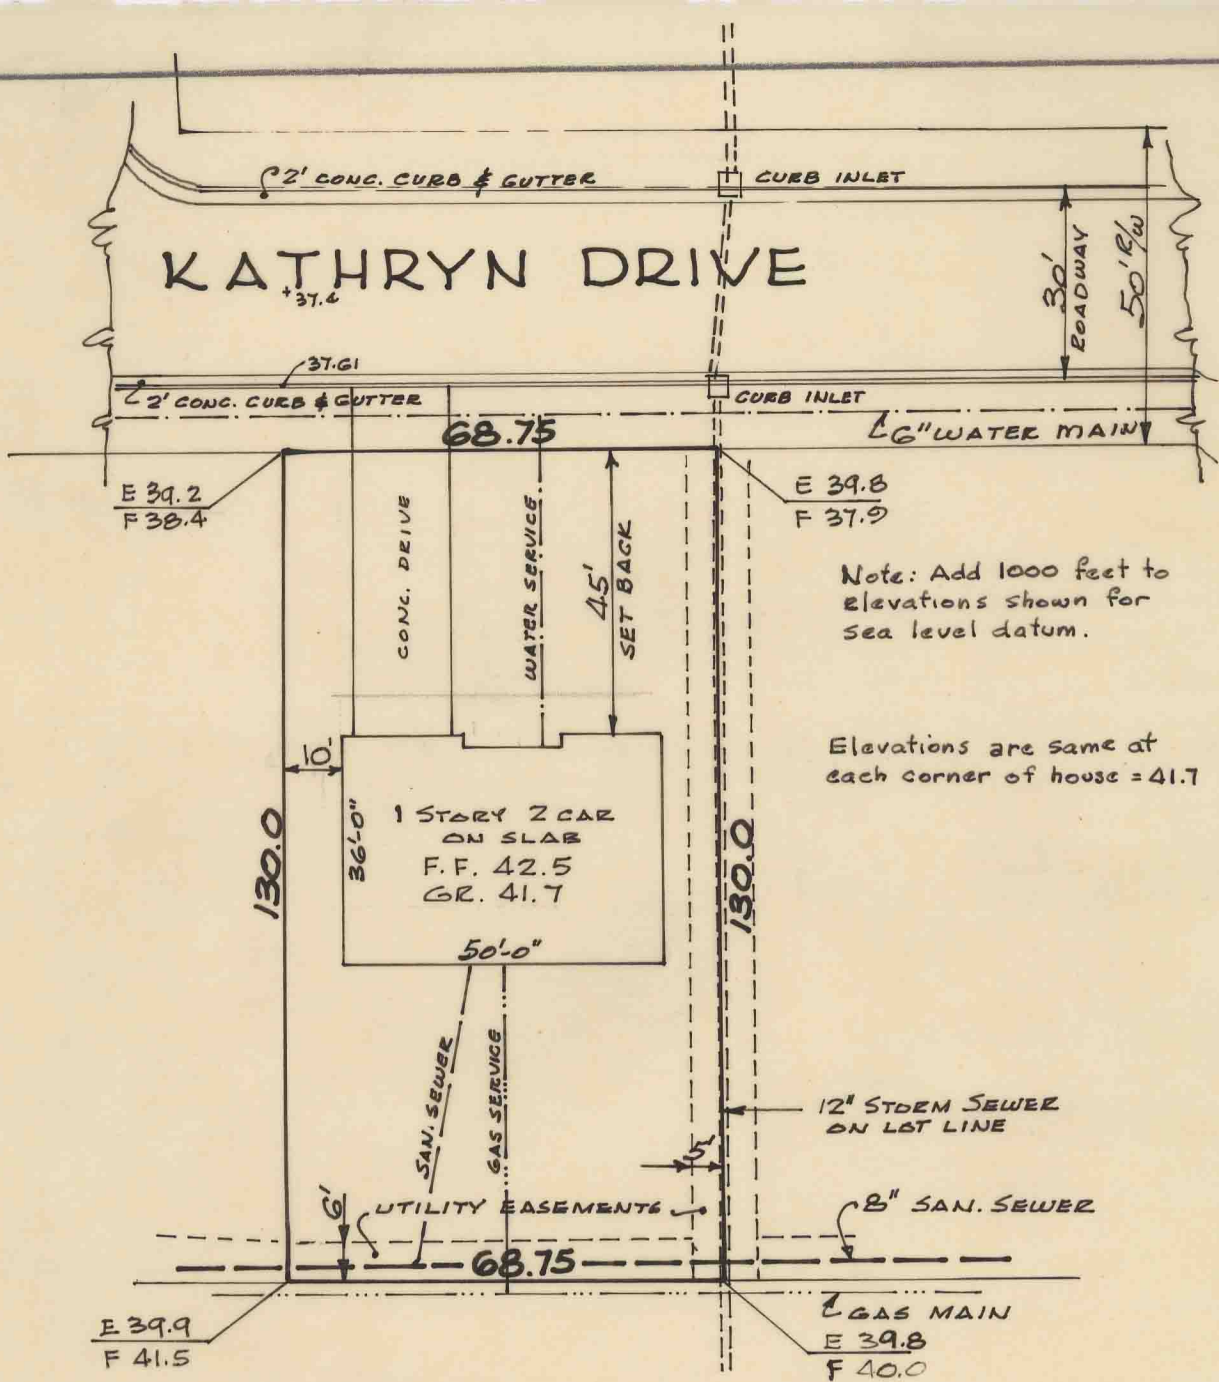 2' CONC. CURB & GUTTER
CURB INLET
KATHRYN DRIVE
+37.4
30'
ROADWAY
50' R/W
37.61
2' CONC. CURB & GUTTER
CURB INLET
68.75
℄ 6" WATER MAIN
E 39.2
F 38.4
E 39.8
F 37.9
CONC. DRIVE
WATER SERVICE
45'
SET BACK
Note: Add 1000 feet to
elevations shown for
sea level datum.
10
Elevations are same at
each corner of house = 41.7
130.0
36'-0"
1 STORY 2 CAR
ON SLAB
F.F. 42.5
GR. 41.7
50'-0"
130.0
SAN. SEWER
GAS SERVICE
12" STORM SEWER
ON LOT LINE
5'
6'
UTILITY EASEMENTS
8" SAN. SEWER
68.75
℄ GAS MAIN
E 39.9
F 41.5
E 39.8
F 40.0